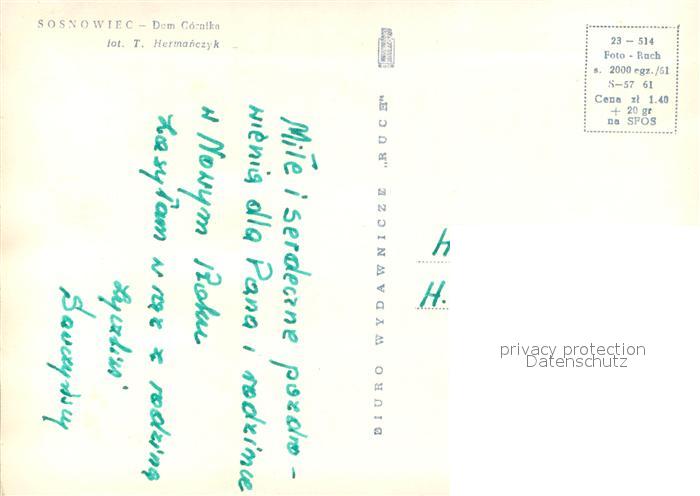 SOSNOWIEC — Dom Górnika
fot. T. Hermańczyk
Miłe i serdeczne pozdro-
wienia dla Pana i rodzince
w Nowym Roku
zasyłam wraz z rodziną
Życzliwi
BIURO WYDAWNICZE „RUCH”
23 — 514
Foto - Ruch
s. 2000 egz./61
S—57 61
Cena zł 1.40
+ 20 gr
na SFOS
H.
privacy protection
Datenschutz